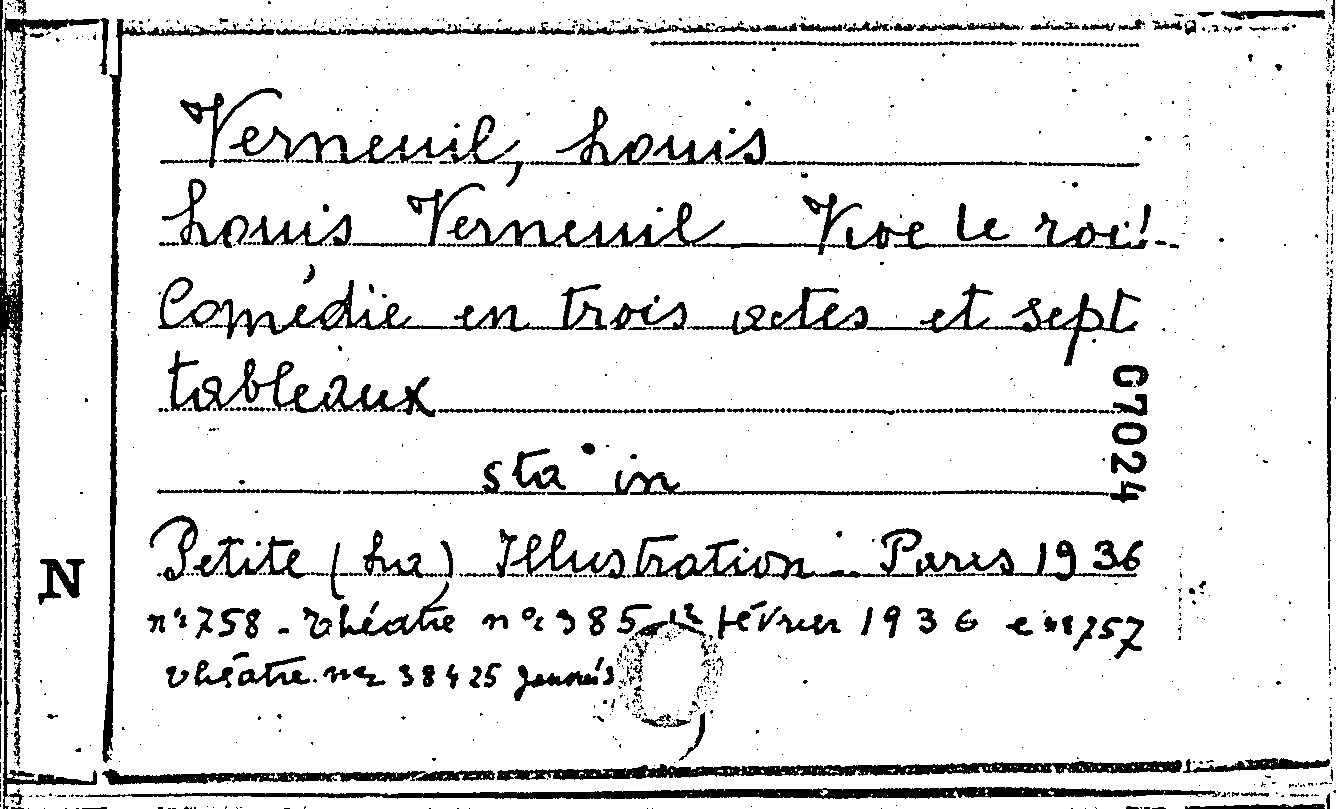 Verneuil, Louis
Louis Verneuil Vive le roi!
Comédie en trois actes et sept
tableaux
sta in
G7024
N
Petite (La) Illustration - Paris 1936
n° 758 - théatre n° 385 - 1r février 1936 e n° 757
théatre n° 384 25